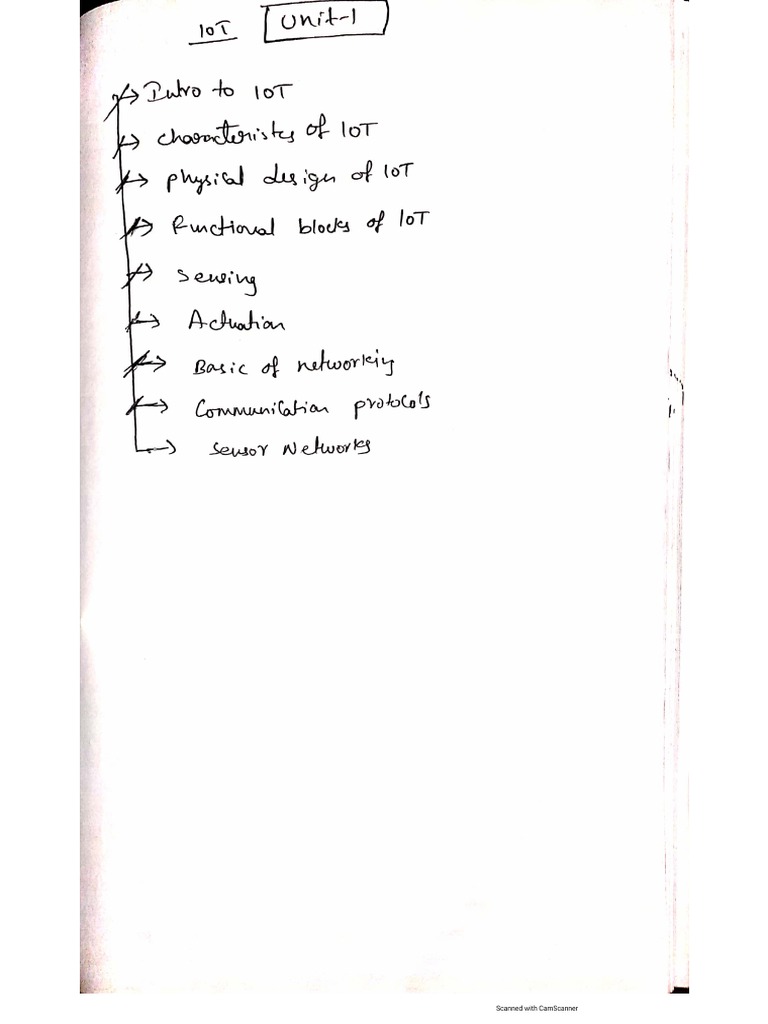 IoT Unit-1
Intro to IoT
Characteristcs of IoT
Physical design of IoT
Functional blocks of IoT
Sensing
Actuation
Basic of networking
Communication protocols
Sensor Networks
Scanned with CamScanner